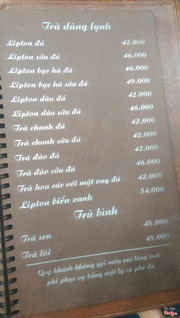 Trà dùng lạnh
Lipton đá 42.000
Lipton sữa đá 46.000
Lipton bạc hà đá 46.000
Lipton bạc hà sữa đá 49.000
Lipton dâu đá 42.000
Lipton dâu sữa đá 46.000
Trà chanh đá 42.000
Trà chanh sữa đá 46.000
Trà đào đá 42.000
Trà đào sữa đá 46.000
Trà hoa cúc với mật ong đá 42.000
Lipton biển xanh 54.000
Trà bình
Trà sen 48.000
Trà lài 48.000
Quý khách không gọi món vui lòng tính
phí phục vụ bằng một ly cà phê Đá